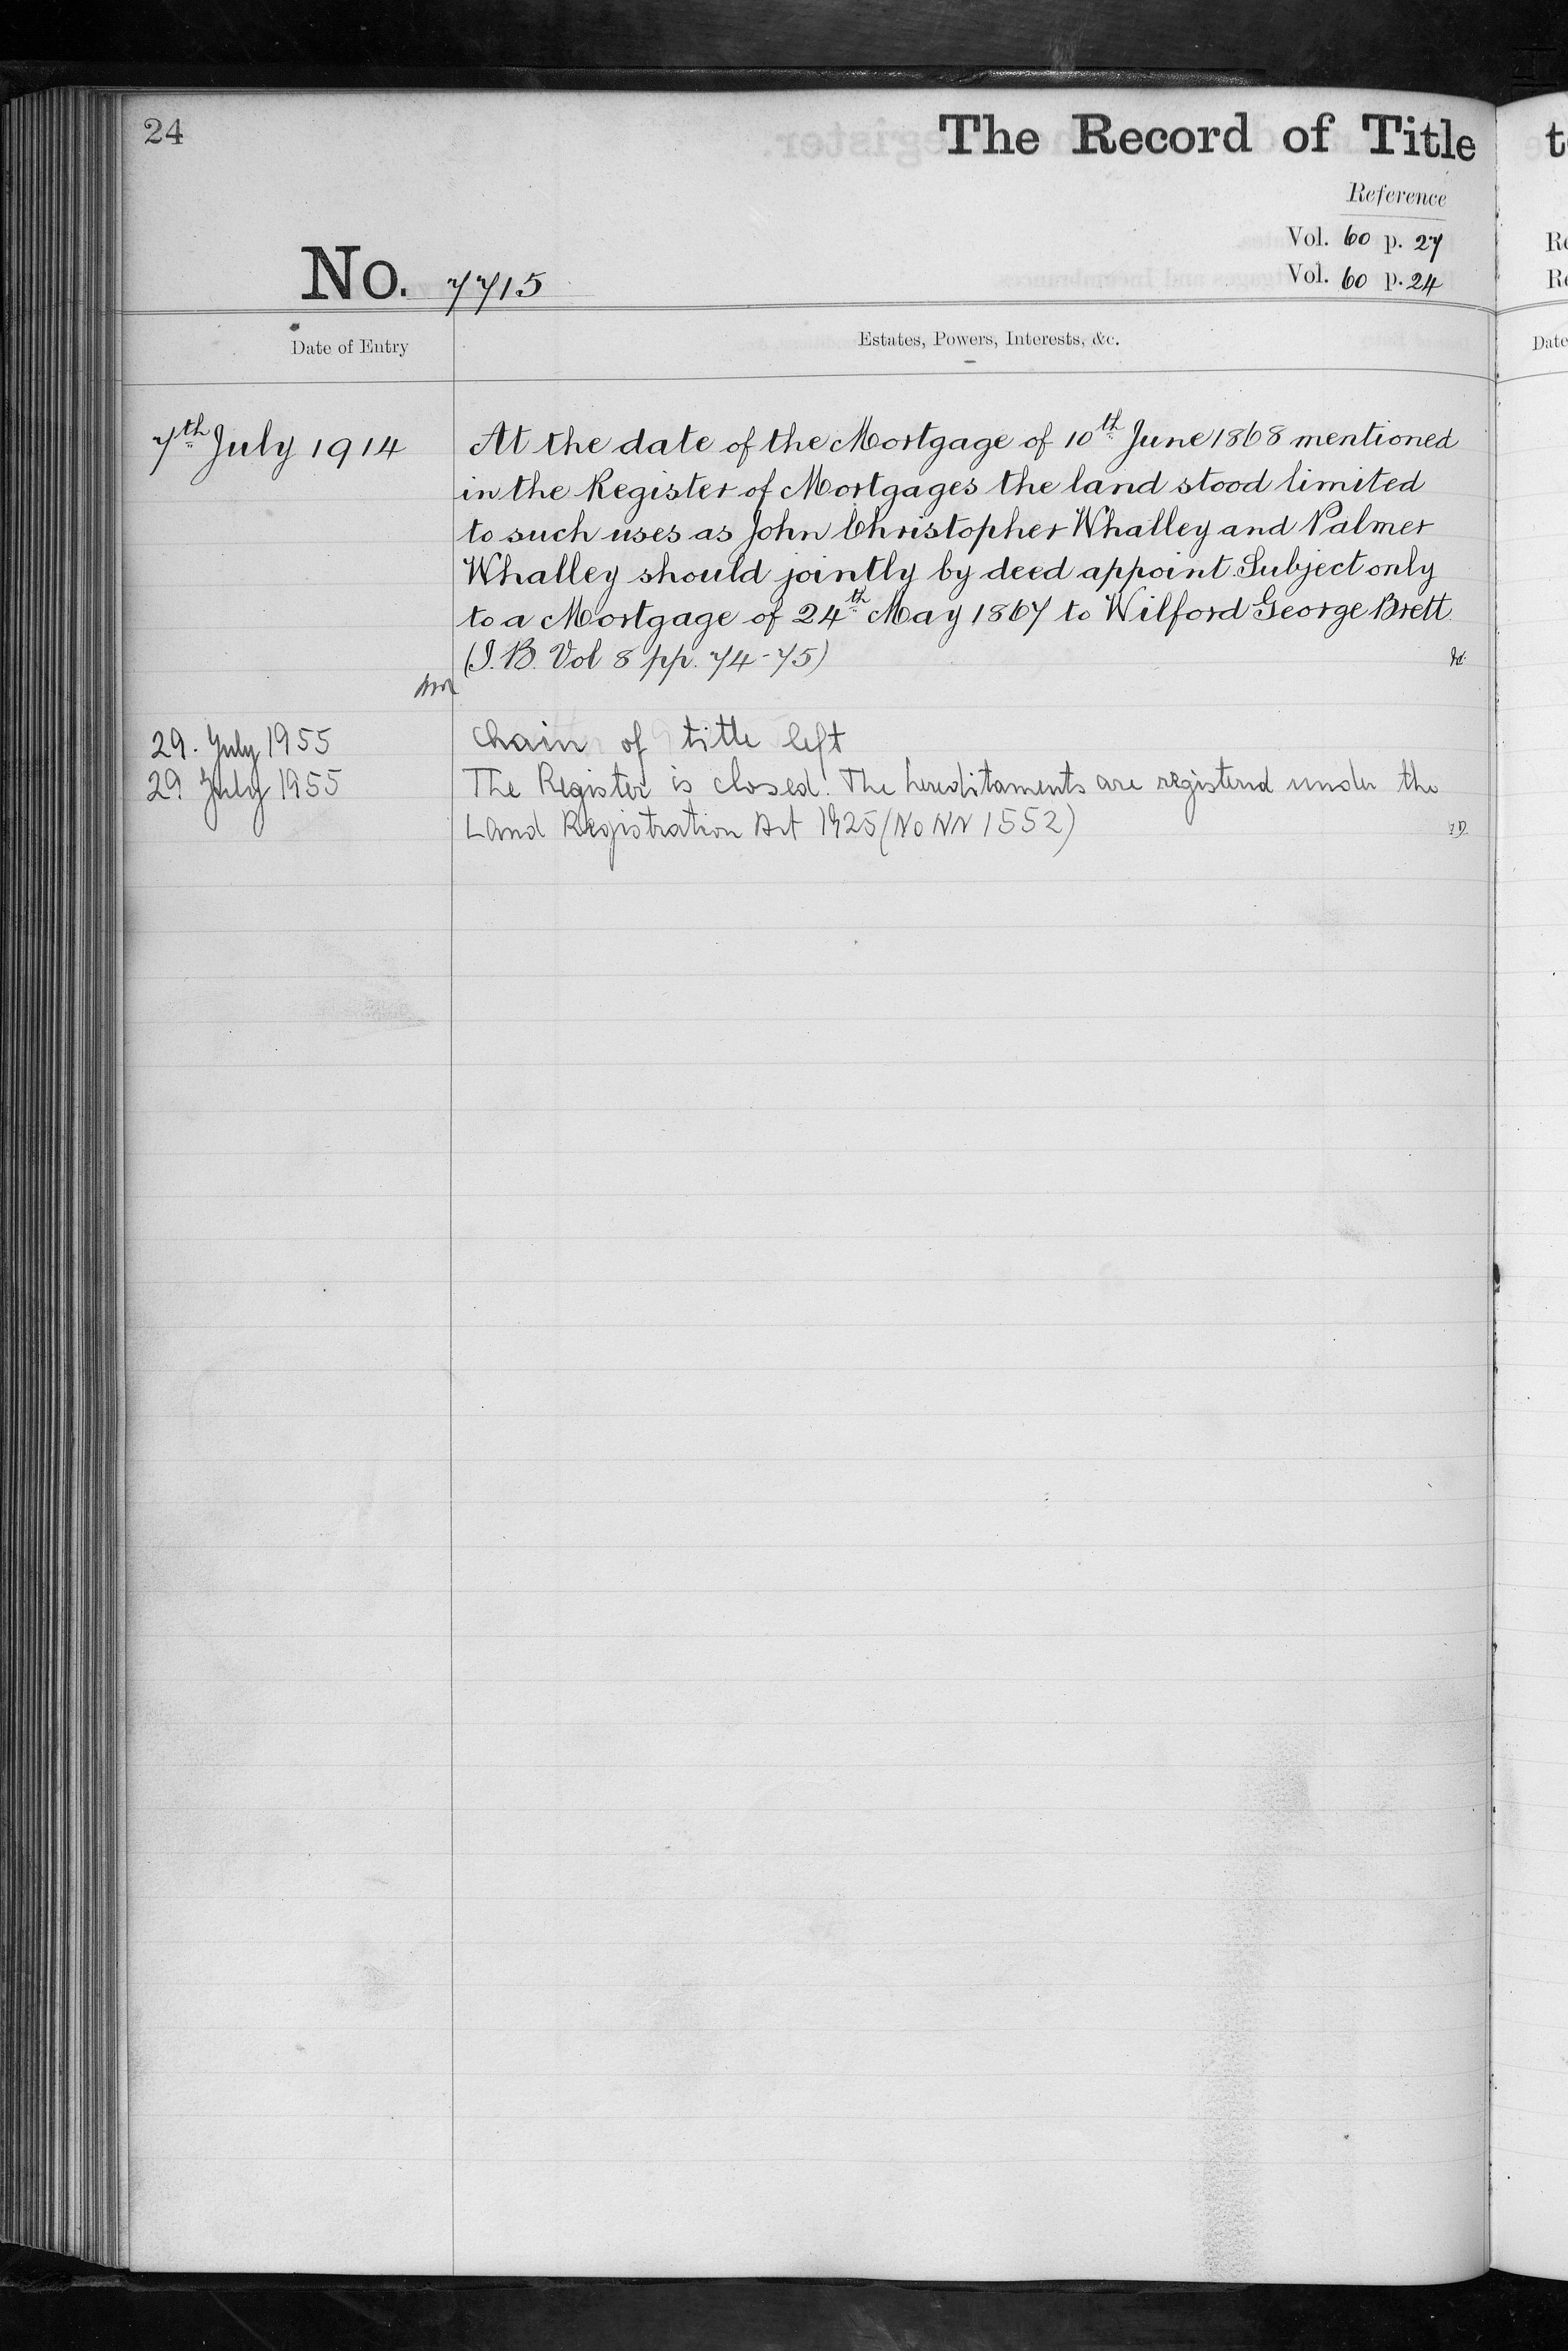 24
The Record of Title
Reference
Vol. 60 p. 27
No. 7715
Vol. 60 p. 24
Date of Entry
Estates, Powers, Interests, &c.
7th July 1914
At the date of the Mortgage of 10th June 1868 mentioned
in the Register of Mortgages the land stood limited
to such uses as John Christopher Whalley and Palmer
Whalley should jointly by deed appoint. Subject only
to a Mortgage of 24th May 1867 to Wilford George Brett
(I.B. Vol 8 pp. 74-75)
29. July 1955
Chain of title left
29 July 1955
The Register is closed. The hereditaments are registered under the
Land Registration Act 1925 (No NN 1552)